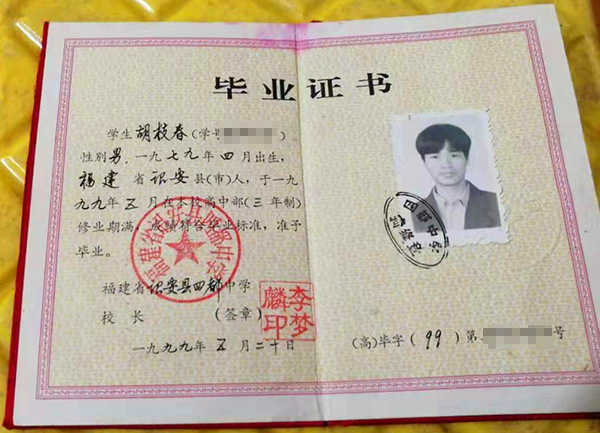 毕业证书
学生胡枝春(学号 ).
性别男,一九七九年四月出生,
福建省诏安县(市)人,于一九
九九年五月在本校高中部(三年制)
修业期满,成绩符合毕业标准,准予
毕业。
福建省诏安县四都中学
校长 (签章)
一九九九年五月二十日
福建省诏安县四都中学
李梦麟印
(高)毕字(99)第 号